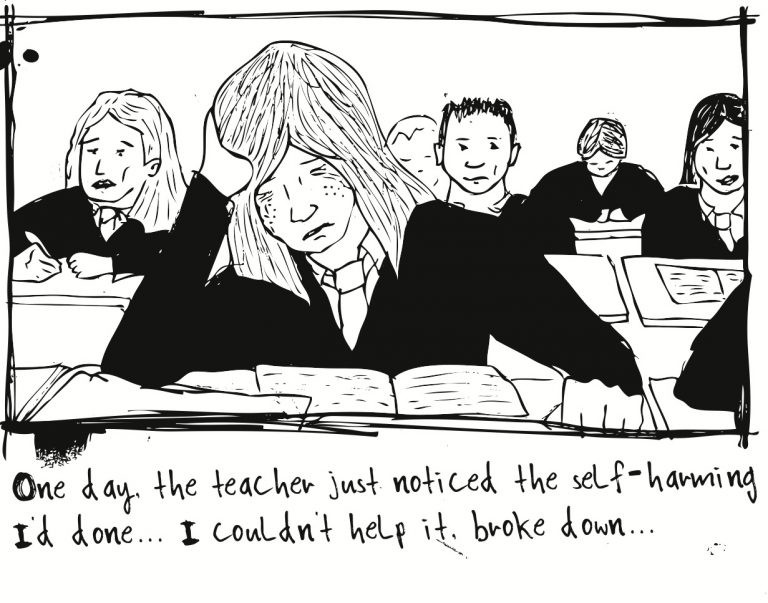 One day, the teacher just noticed the self-harming
I'd done... I couldn't help it, broke down...